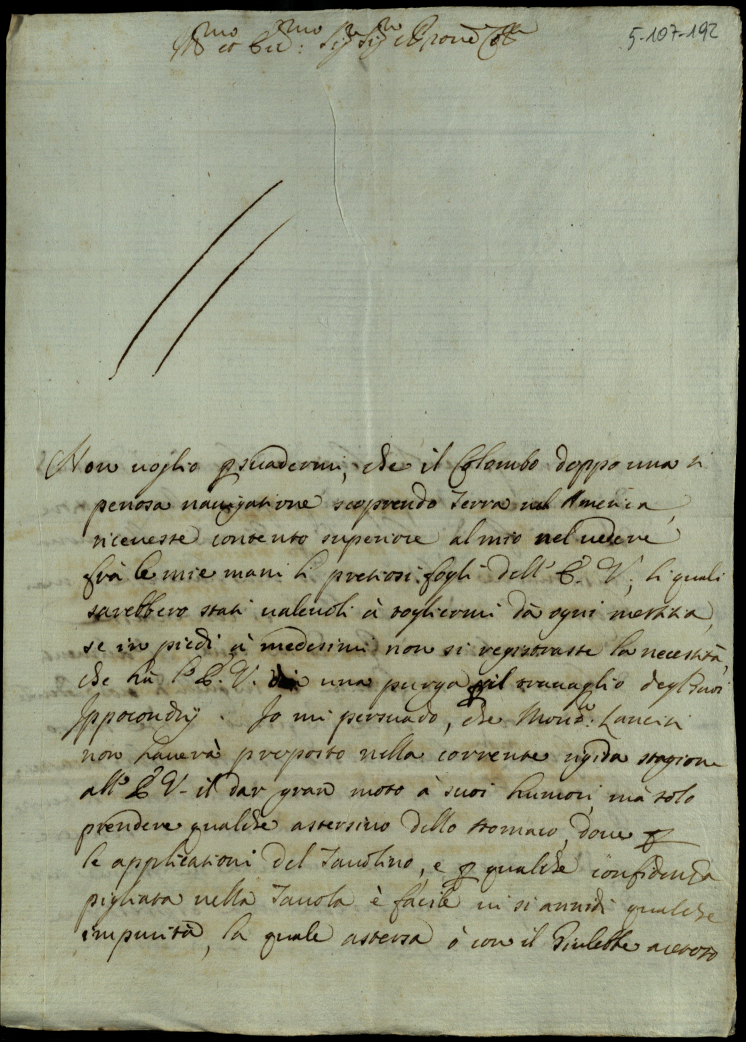 5-107-192
Ill.mo et Ecc:mo Sig.r Sig.r e Prone Coll.mo
Non voglio p̱suadermi, che il Colombo doppo una sì
penosa navigatione scoprendo Terra nel America,
ricevesse contento superiore al mio nel vedere
frà le mie mani li pretiosi fogli dell' E. V., li quali
sarebbero stati valevoli à togliermi dà ogni mestitia,
se in piedi à medesimi non si registrasse la necessità,
che hà l'E. V. di una purga pil travaglio degl Suoi
Ippocondrij. Io mi persuado, che Mons.r Lancisi
non haverà proposto nella corrente rigida stagione
all' E V. il dar gran moto à suoi humori, mà solo
prendere qualche astersivo dello stomaco, dove p
le applicationi del Tavolino, e p qualche confidenza
pigliata nella Tavola è facile vi si annidi qualche
impurità, la quale astersa ò con il Giulebbe acetoso